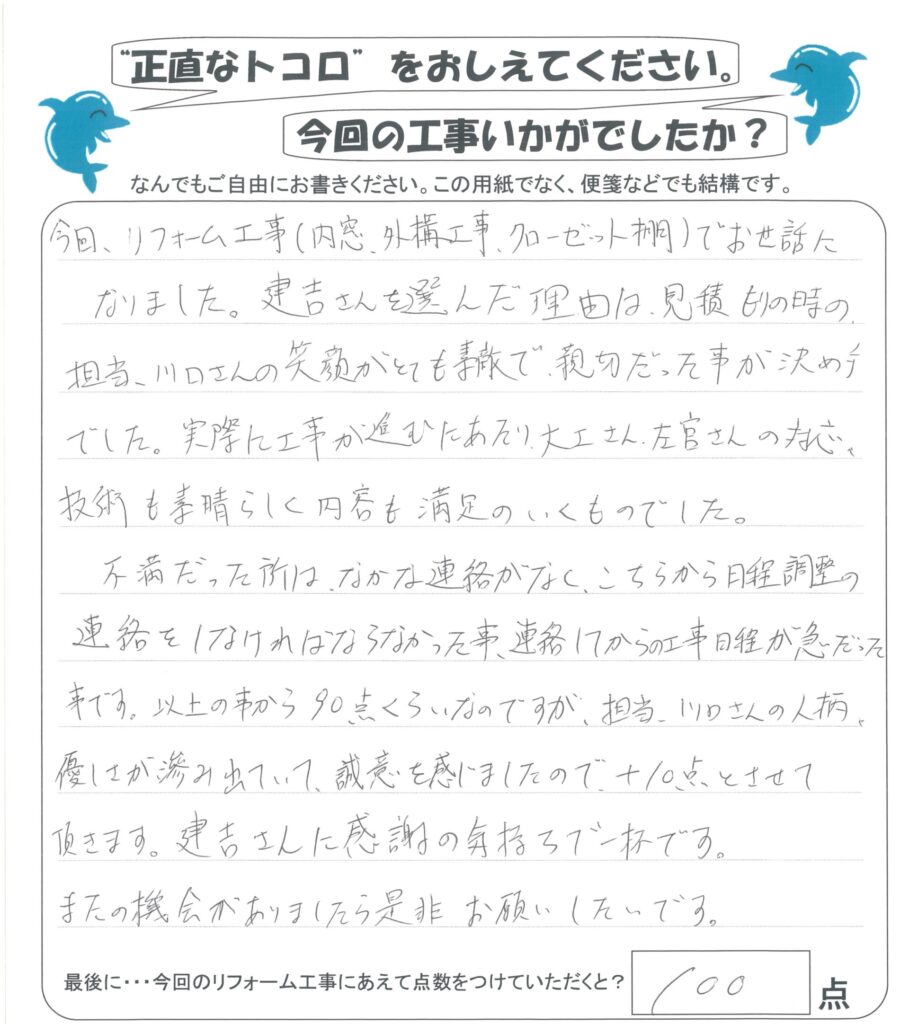 “正直なトコロ”をおしえてください。
今回の工事いかがでしたか？
なんでもご自由にお書きください。この用紙でなく、便箋などでも結構です。
今回、リフォーム工事(内窓、外構工事、クローゼット棚)でお世話に
なりました。建吉さんを選んだ理由は、見積もりの時の、
担当、川口さんの笑顔がとても素敵で、親切だった事が決め手
でした。実際に工事が進むにあたり、大工さん、左官さんの対応、
技術も素晴らしく内容も満足のいくものでした。
不満だった所は、なかな連絡がなく、こちらから日程調整の
連絡をしなければならなかった事、連絡してからの工事日程が急だった
事です。以上の事から90点くらいなのですが、担当、川口さんの人柄、
優しさが滲み出ていて、誠意を感じましたので、+10点とさせて
頂きます。建吉さんに感謝の気持ちで一杯です。
またの機会がありましたら是非お願いしたいです。
最後に・・・今回のリフォーム工事にあえて点数をつけていただくと？ 100 点